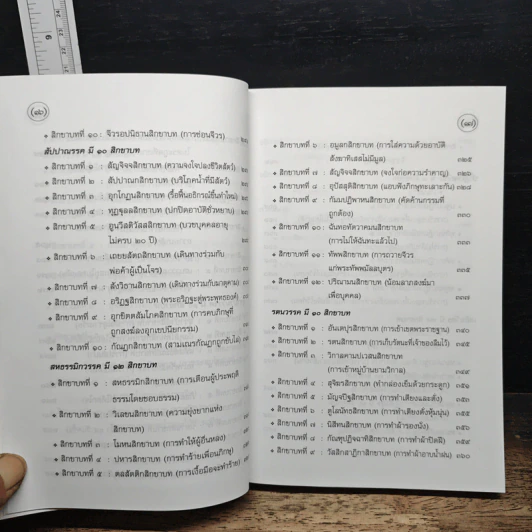 (๑๖)
❖ สิกขาบทที่ ๑๐ : จีวรอปนิธานสิกขาบท (การซ่อนจีวร)
สัปปาณวรรค มี ๑๐ สิกขาบท
❖ สิกขาบทที่ ๑ : สัญจิจจสิกขาบท (ความจงใจปลงชีวิตสัตว์)
❖ สิกขาบทที่ ๒ : สัปปาณกสิกขาบท (บริโภคน้ำที่มีสัตว์)
❖ สิกขาบทที่ ๓ : อุกโกฏนสิกขาบท (รื้อฟื้นอธิกรณ์ขึ้นทำใหม่)
❖ สิกขาบทที่ ๔ : ทุฏฐุลลสิกขาบท (ปกปิดอาบัติชั่วหยาบ)
❖ สิกขาบทที่ ๕ : อูนวีสติวัสสสิกขาบท (บวชบุคคลอายุ
ไม่ครบ ๒๐ ปี)
❖ สิกขาบทที่ ๖ : เถยยสัตถสิกขาบท (เดินทางร่วมกับ
พ่อค้าผู้เป็นโจร)
❖ สิกขาบทที่ ๗ : สังวิธานสิกขาบท (เดินทางร่วมกับมาตุคาม)
❖ สิกขาบทที่ ๘ : อริฏฐสิกขาบท (พระอริฏฐะตู่พระพุทธองค์)
❖ สิกขาบทที่ ๙ : อุกขิตตสัมโภคสิกขาบท (การคบภิกษุที่
ถูกสงฆ์ลงอุกเขปนียกรรม)
❖ สิกขาบทที่ ๑๐ : กัณฏกสิกขาบท (สามเณรกัณฏกถูกขับไล่)
สหธรรมิกวรรค มี ๑๒ สิกขาบท
❖ สิกขาบทที่ ๑ : สหธรรมิกสิกขาบท (การเตือนผู้ประพฤติ
ธรรมโดยชอบธรรม)
❖ สิกขาบทที่ ๒ : วิเลขนสิกขาบท (ความยุ่งยากแห่ง
สิกขาบท)
❖ สิกขาบทที่ ๓ : โมหนสิกขาบท (การทำให้ผู้อื่นหลง)
❖ สิกขาบทที่ ๔ : ปหารสิกขาบท (การทำร้ายเพื่อนภิกษุ)
❖ สิกขาบทที่ ๕ : ตลสัตติกสิกขาบท (การเงื้อมือจะทำร้าย)
(๑๗)
❖ สิกขาบทที่ ๖ : อมูลกสิกขาบท (การใส่ความด้วยอาบัติ
สังฆาทิเสสไม่มีมูล) ๓๒๕
❖ สิกขาบทที่ ๗ : สัญจิจจสิกขาบท (จงใจก่อความรำคาญ) ๓๒๖
❖ สิกขาบทที่ ๘ : อุปัสสุติสิกขาบท (แอบฟังภิกษุทะเลาะกัน) ๓๒๘
❖ สิกขาบทที่ ๙ : กัมมปฏิพาหนสิกขาบท (คัดค้านกรรมที่
ถูกต้อง) ๓๓๐
❖ สิกขาบทที่ ๑๐ : ฉันทอทัตวาคมนสิกขาบท
(การไม่ให้ฉันทะแล้วไป) ๓๓๓
❖ สิกขาบทที่ ๑๑ : ทัพพสิกขาบท (การถวายจีวร
แก่พระทัพพมัลลบุตร) ๓๓๕
❖ สิกขาบทที่ ๑๒ : ปริณามนสิกขาบท (น้อมลาภสงฆ์มา
เพื่อบุคคล) ๓๓๗
รตนวรรค มี ๑๐ สิกขาบท
❖ สิกขาบทที่ ๑ : อันเตปุรสิกขาบท (การเข้าเขตพระราชฐาน) ๓๔๐
❖ สิกขาบทที่ ๒ : รตนสิกขาบท (การเก็บรัตนะที่เจ้าของลืมไว้) ๓๔๕
❖ สิกขาบทที่ ๓ : วิกาลคามปเวสนสิกขาบท
(การเข้าหมู่บ้านยามวิกาล) ๓๔๘
❖ สิกขาบทที่ ๔ : สูจิฆรสิกขาบท (ทำกล่องเข็มด้วยกระดูก) ๓๕๑
❖ สิกขาบทที่ ๕ : มัญจปีฐสิกขาบท (การทำเตียงและตั่ง) ๓๕๓
❖ สิกขาบทที่ ๖ : ตูโลนัทธสิกขาบท (การทำเตียงตั่งหุ้มนุ่น) ๓๕๕
❖ สิกขาบทที่ ๗ : นิสีทนสิกขาบท (การทำผ้ารองนั่ง) ๓๕๖
❖ สิกขาบทที่ ๘ : กัณฑุปฏิจฉาทิสิกขาบท (การทำผ้าปิดฝี) ๓๕๙
❖ สิกขาบทที่ ๙ : วัสสิกสาฏิกาสิกขาบท (การทำผ้าอาบน้ำฝน) ๓๖๐